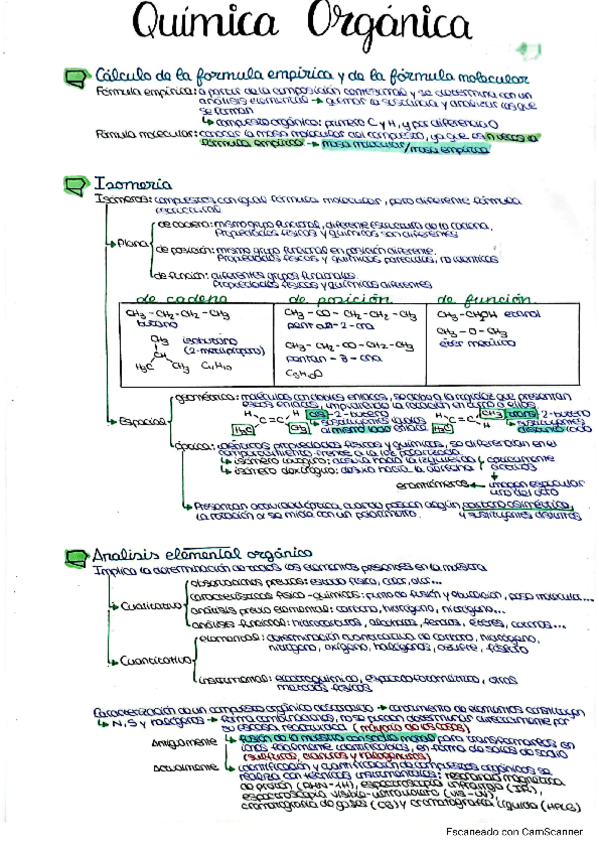 Química Orgánica
Cálculo de la formula empírica y de la fórmula molecular
Fórmula empírica: a partir de la composición centesimal y se determina con un
análisis elemental → quemar la sustancia y analizar los que
se forman
↳ compuesto orgánico: primero C y H, y por diferencia O
Fórmula molecular: conocer la masa molecular del compuesto, ya que es n veces la
fórmula empírica → masa molecular/masa empírica
Isomería
Isómeros: compuestos con igual fórmula molecular, pero diferente fórmula
→ Plana
de cadena: mismo grupo funcional, diferente estructura de la cadena.
Propiedades físicas y químicas son diferentes
de posición: mismo grupo funcional en posición diferente.
Propiedades físicas y químicas parecidas, no idénticas
de función: diferentes grupos funcionales.
Propiedades físicas y químicas diferentes
de cadena de posición de función
CH3 - CH2 - CH2 - CH3
butano
CH3 isobutano
CH (2-metilpropano)
H3C CH3 C4H10
CH3 - CO - CH2 - CH2 - CH3
pentan-2-ona
CH3 - CH2 - CO - CH2 - CH3
pentan-3-ona
CH3 - CH2OH etanol
CH3 - O - CH3
→ Espacial
geométrica: moléculas con dobles enlaces, se debe a la rigidez que presentan
esos enlaces, impidiendo la rotación en torno a ellos
H C=C H cis-2-buteno
H3C CH3 al mismo lado enlace
H C=C CH3 trans-2-buteno
H3C H sustituyentes distinto lado
óptica: idénticas propiedades físicas y químicas, se diferencian en el
comportamiento frente a la luz polarizada
→ isómero levógiro: desvía hacia la izquierda
→ isómero dextrógiro: desvía hacia la derecha
enantiómeros ← imagen especular
uno del otro
→ Presentan actividad óptica cuando poseen algún carbono asimétrico,
La rotación α se mide con un polarímetro. 4 sustituyentes distintos
Analisis elemental orgánico
Implica la determinación de todos los elementos presentes en la muestra
→ Cualitativo
observaciones previas: estado físico, color, olor...
características físico-químicas: punto de fusión y ebullición, peso molecular...
análisis previo elemental: carbono, hidrógeno, nitrógeno...
análisis funcional: hidrocarburos, alcoholes, fenoles, éteres, cetonas...
→ Cuantitativo
elementales: determinación cuantitativa de carbono, hidrógeno,
nitrógeno, oxígeno, halógenos, azufre, fósforo
instrumental: electroquímico, espectrofotométrico, otros
métodos físicos
Caracterización de un compuesto orgánico desconocido → conocimiento de elementos constituyen
↳ N, S y halógenos → forma combinaciones, no se pueden determinar directamente por
su escasa reactividad (mayoría de los casos)
Antiguamente → fusión de la muestra con sodio metal para transformarlos en
iones fácilmente identificables, en forma de sales de sodio
(sulfuros, cianuros y halogenuros)
Actualmente → identificación y cuantificación de compuestos orgánicos se
realiza con técnicas instrumentales: resonancia magnética
de protón (RMN-1H), espectroscopía infrarroja (IR),
espectroscopía visible-ultravioleta (VIS-UV),
cromatografía de gases (CG) y cromatografía líquida (HPLC)
Escaneado con CamScanner